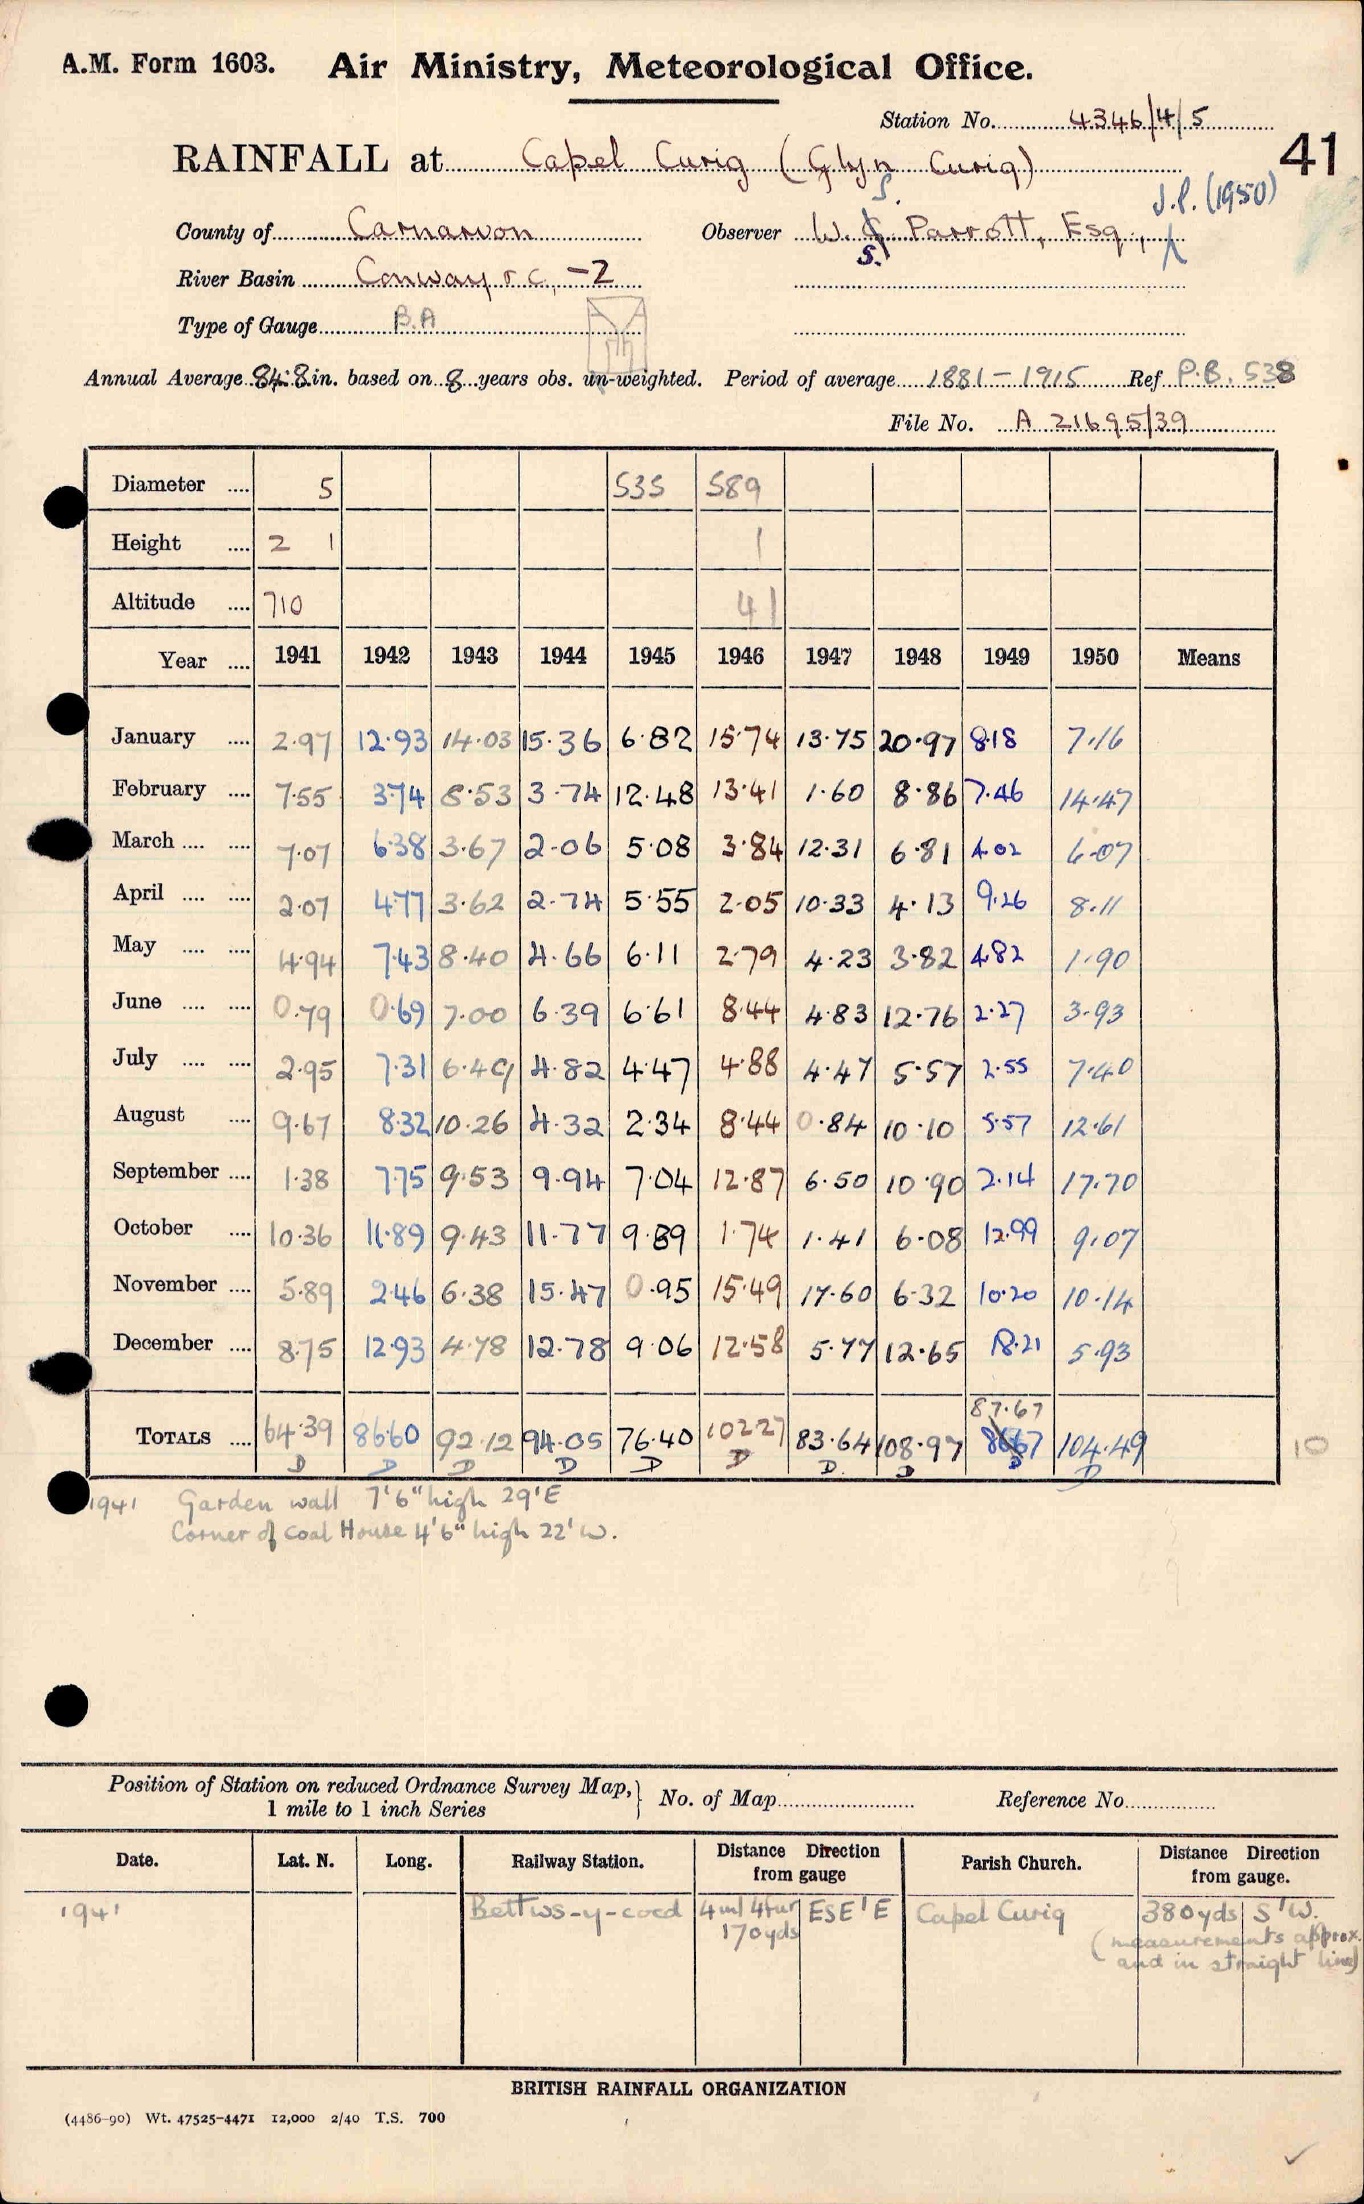 A.M. Form 1603. Air Ministry, Meteorological Office.
Station No. 4346/4/5
41
RAINFALL at Capel Curig (Glyn Curig)
J.P. (1950)
County of Carnarvon Observer W. S. Parrott, Esq.,
River Basin Conway r c, -2
Type of Gauge B.A
Annual Average 84.8 in. based on 8 years obs. un-weighted. Period of average 1881-1915 Ref P.B. 538
File No. A 21695/39
Diameter .... 5 535 589
Height .... 2 1 1
Altitude .... 710 41
Year .... 1941 1942 1943 1944 1945 1946 1947 1948 1949 1950 Means
January .... 2.97 12.93 14.03 15.36 6.82 15.74 13.75 20.97 8.18 7.16
February .... 7.55 3.74 8.53 3.74 12.48 13.41 1.60 8.86 7.46 14.47
March .... .... 7.07 6.38 3.67 2.06 5.08 3.84 12.31 6.81 4.02 6.07
April .... .... 2.07 4.77 3.62 2.74 5.55 2.05 10.33 4.13 9.26 8.11
May .... .... 4.94 7.43 8.40 4.66 6.11 2.79 4.23 3.82 4.82 1.90
June .... .... 0.79 0.69 7.00 6.39 6.61 8.44 4.83 12.76 2.27 3.93
July .... .... 2.95 7.31 6.49 4.82 4.47 4.88 4.47 5.57 2.55 7.40
August .... 9.67 8.32 10.26 4.32 2.34 8.44 0.84 10.10 5.57 12.61
September .... 1.38 7.75 9.53 9.94 7.04 12.87 6.50 10.90 2.14 17.70
October .... 10.36 11.89 9.43 11.77 9.89 1.74 1.41 6.08 12.99 9.07
November .... 5.89 2.46 6.38 15.47 0.95 15.49 17.60 6.32 10.20 10.14
December .... 8.75 12.93 4.78 12.78 9.06 12.58 5.77 12.65 18.21 5.93
87.67
TOTALS .... 64.39 86.60 92.12 94.05 76.40 102.27 83.64 108.97 86.67 104.49 10
D D D D D D D D D D
1941 Garden wall 7'6" high 29'E
Corner of Coal House 4'6" high 22'W.
Position of Station on reduced Ordnance Survey Map, 1 mile to 1 inch Series No. of Map Reference No.
Date. Lat. N. Long. Railway Station. Distance Direction from gauge Parish Church. Distance Direction from gauge.
1941 Bettws-y-coed 4ml 4fur 170yds ESE'E Capel Curig 380yds S'W.
(measurements approx.
and in straight line)
BRITISH RAINFALL ORGANIZATION
(4486-90) Wt. 47525-4471 12,000 2/40 T.S. 700